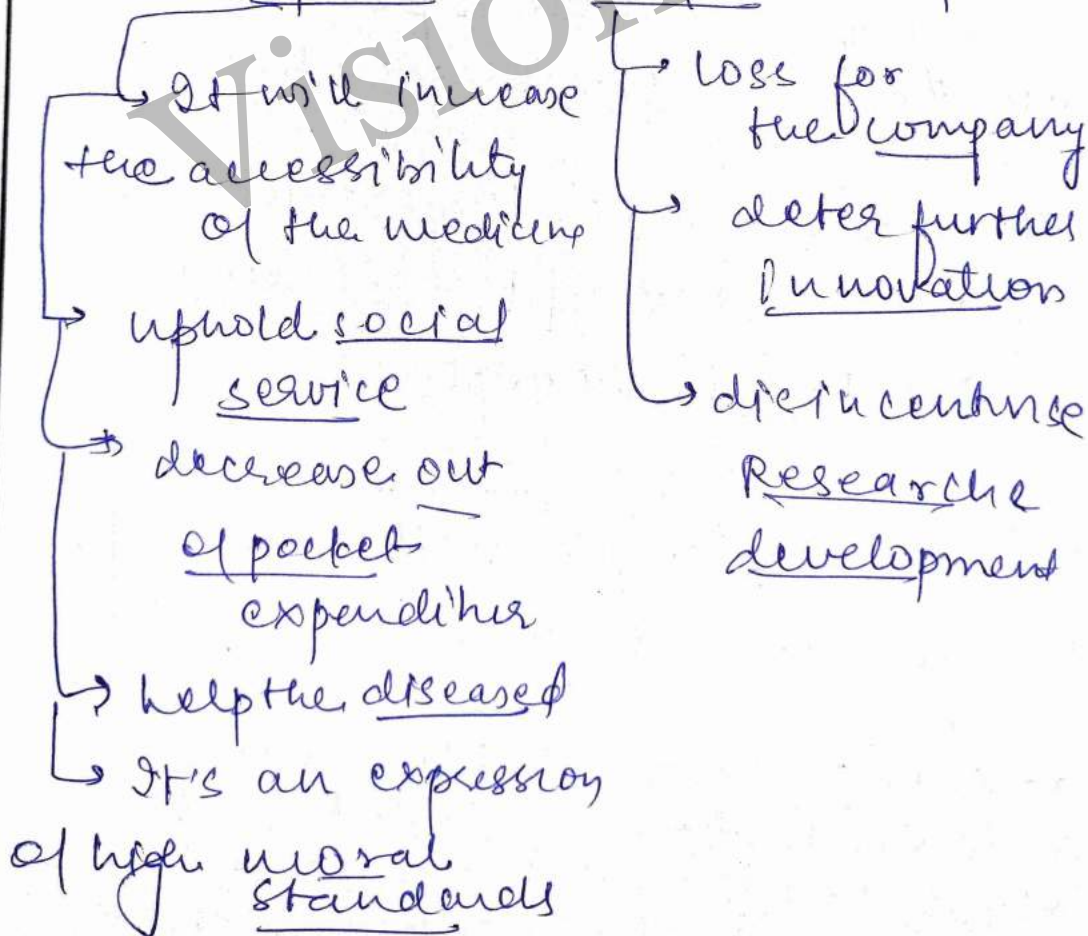 Vision
It will increase
the accessibility
of the medicine
uphold social
service
decrease out
of pocket
expenditure
help the diseased
It's an expression
of high moral
standards
loss for
the company
deter further
Innovation
disincentivise
Research
development